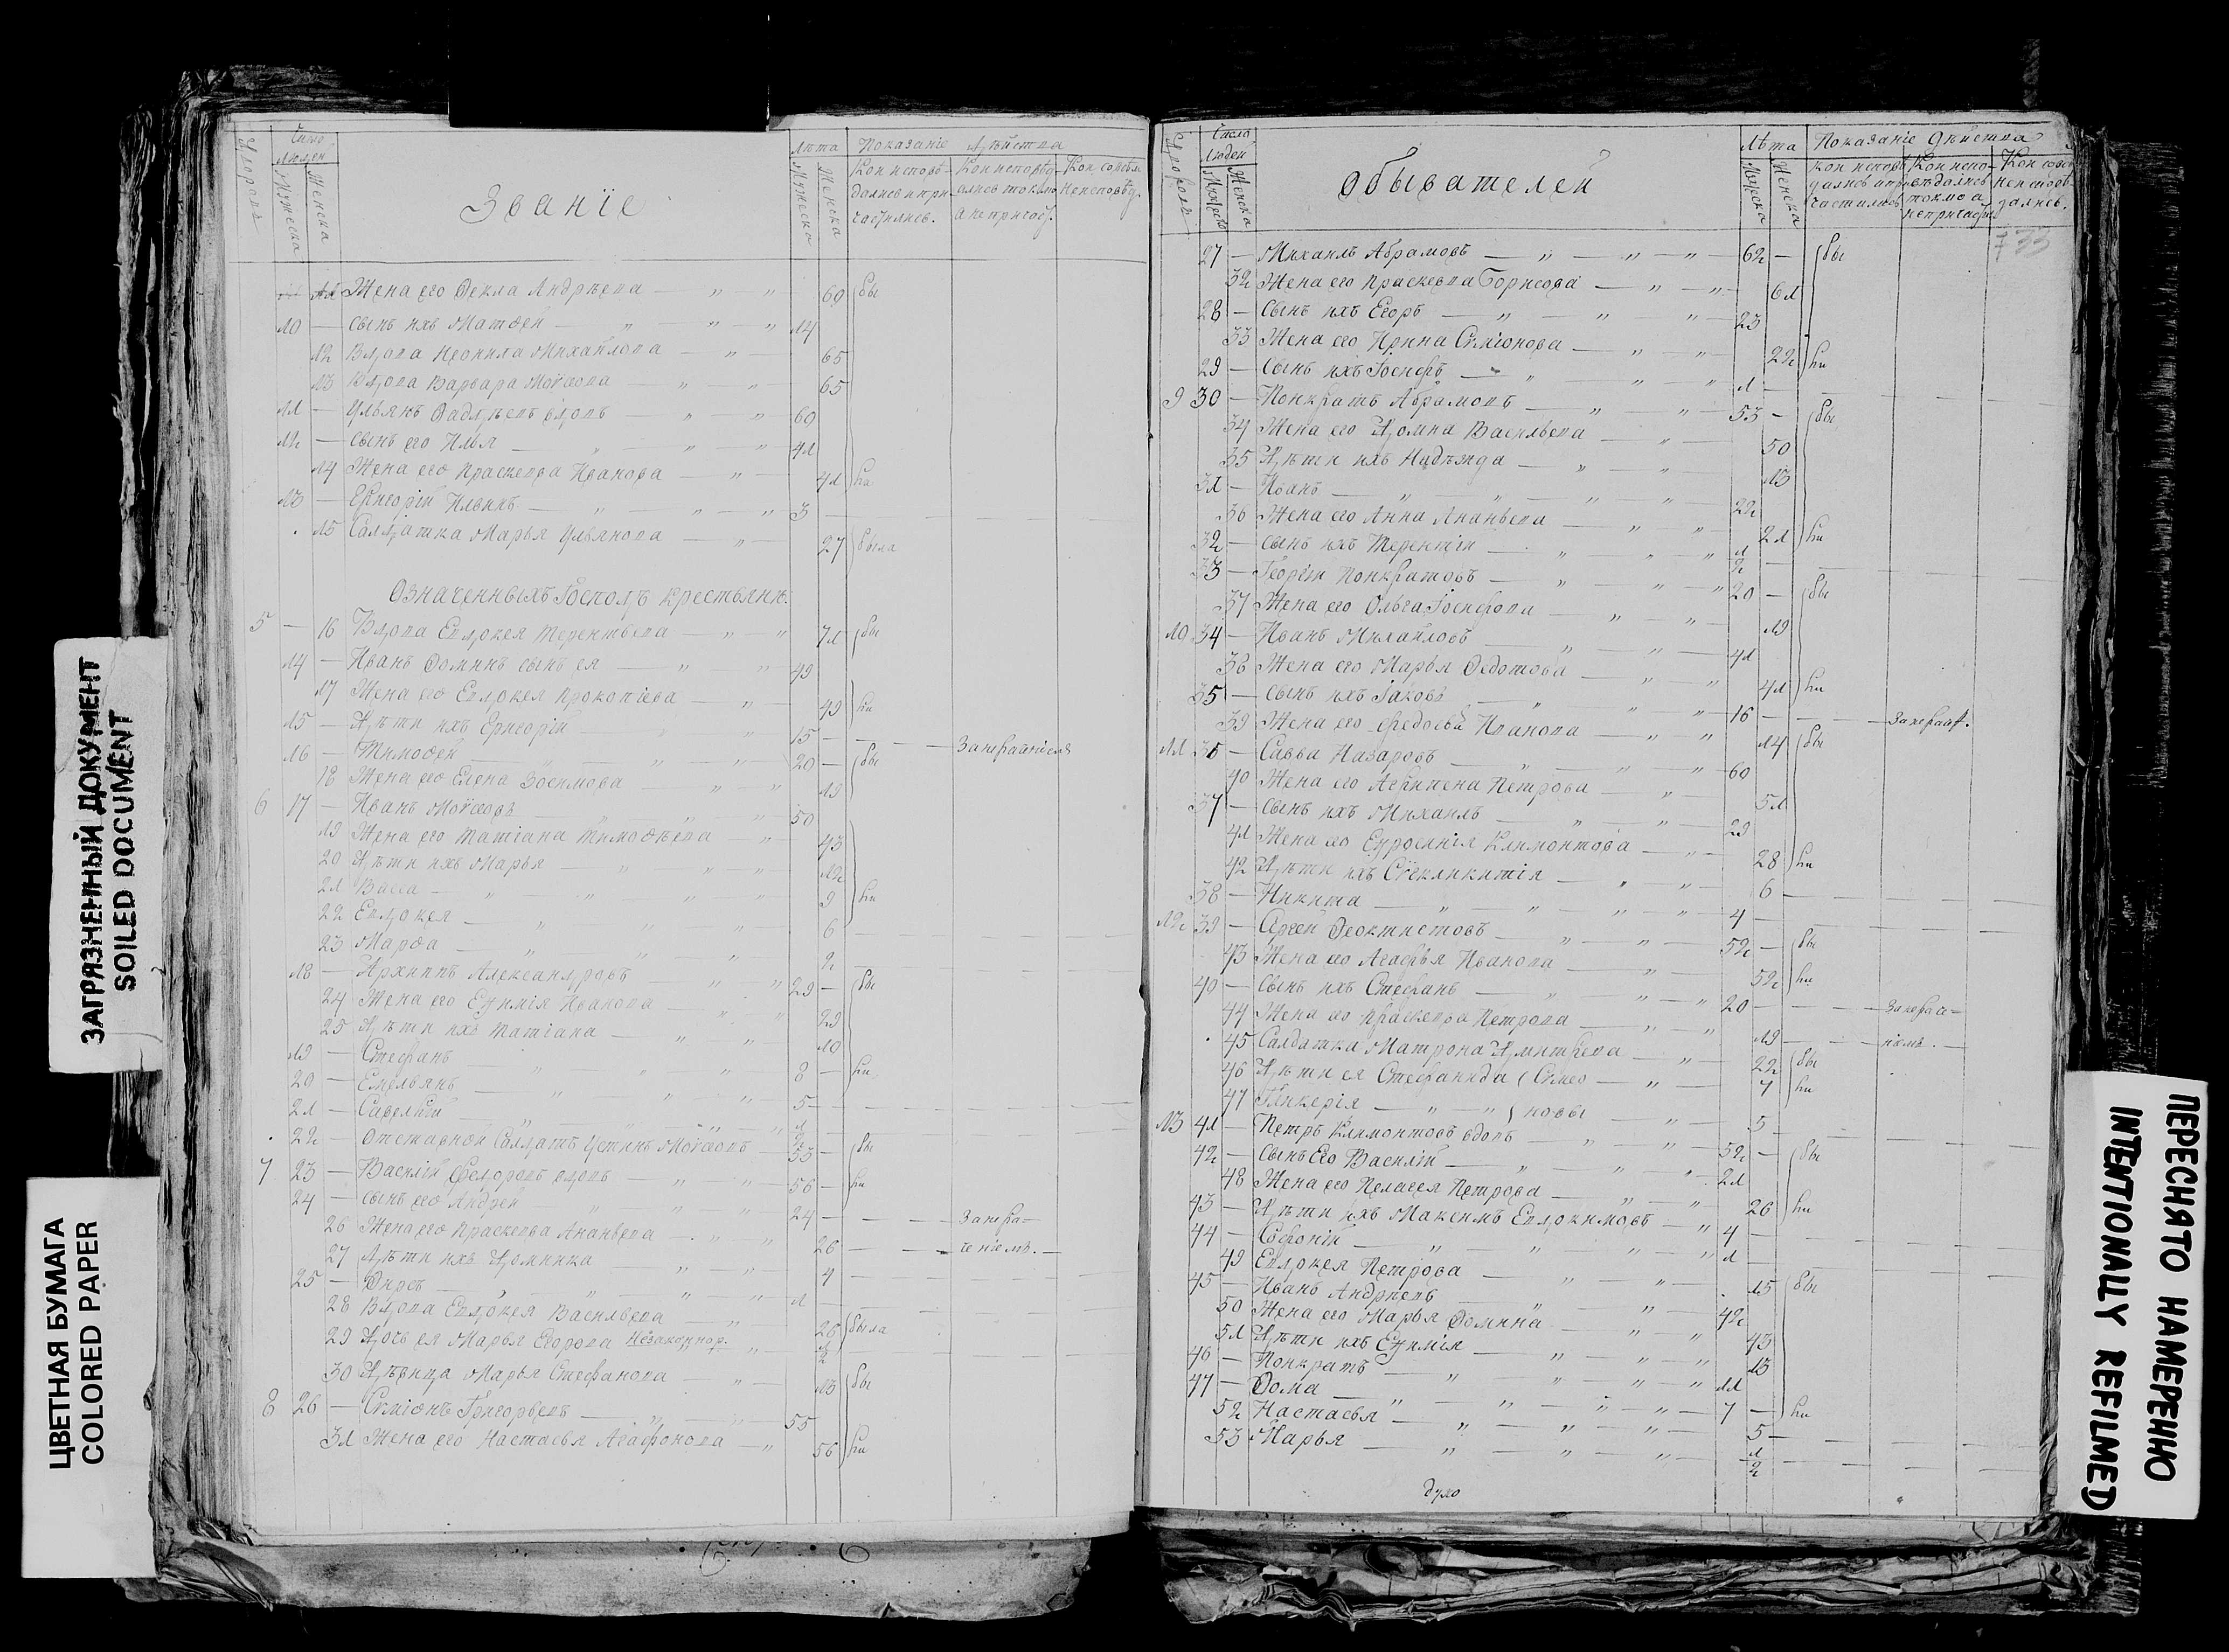 Званіе
Число людей
Лѣта
Показаніе дѣйства
Мужеска
Женска
Мужеска
Женска
Кои исповѣдались и причастились.
Кои исповѣдались токмо а не причаст.
Кои совсѣм не исповѣд.
11 Жена его Ѳекла Андрѣева — „ — „ 60 бы
10 — сынъ ихъ Матѳей — „ — „ — „ 14
12 Вдова Неонила Михайлова — „ — 65
13 Вдова Варвара Моѵсѣова — „ — „ — 65
11 — Ульянъ Фадѣевъ вдовъ — „ — „ 60
12 — сынъ его Илья — „ — „ — „ 41
14 Жена его Праскева Иванова — „ 41 ли
13 — Григорій Ильинъ — „ — „ — „ 3
15 Салдатка Марья Ульянова — „ — 27 была
Означенныхъ Господъ крестьяне.
5 — 16 Вдова Евдокея Терентьева — „ — „ 71 бы
14 — Иванъ Ѳоминъ сынъ ея — „ — „ 49
17 Жена его Евдокея Прокопіева — „ — 49 ли
15 — Дѣти ихъ Григорій „ „ 15 — — —
16 — Тимоѳей „ „ 20 — бы
18 Жена его Елена Зосимова — „ — „ 19
6 17 — Иванъ Моѵсѣовъ „ 50
19 Жена его Татіана Тимоѳѣева — „ 43
20 Дѣти ихъ Марья — „ — „ — „ 12
21 Васса — „ — „ — „ — „ 9 ли
22 Евдокея — „ „ „ 6
23 Марѳа — „ „ „ 2
18 — Архиппъ Александровъ — „ — „ 29 — бы
24 Жена его Еѵфимія Иванова — „ — „ 29
25 Дѣти ихъ Татіана — „ „ 10
19 — Стефанъ „ „ 8 — ли
20 — Емельянъ „ „ 5
21 — Савелій „ „
22 — Отставной Салдатъ Устинъ Моѵсѣовъ 55 — бы
7 23 — Василій Федоровъ вдовъ — „ — „ 56 — ли
24 — сынъ его Андрей „ „ 24 — — —
26 Жена его Праскева Ананьева — „ „ 26 — — —
27 Дѣти ихъ Домника „ — „ — 4
25 — Ѳирсъ — „ — „ — „ 1
28 Вдова Евдокея Васильева — „ 26 была
29 Дочь ея Марья Егорова Незаконнор. „
30 Дѣвица Марья Стефанова — „ — 13 бы
8 26 — Симіонъ Григорьевъ — „ 55
31 Жена его Настасья Агафонова — „ 56 ли
Обывателей
Число Людей
Лѣта
Показаніе дѣйства
Мужеска
Женска
Мужеска
Женска
кои исповѣдались и причастились
Кои исповѣдались токмо а не причаст
Кои совсѣм не исповѣдались.
27 — Михаилъ Абрамовъ — „ — „ — „ — 62 — бы
32 Жена его Праскева Борисова — „ — „ 61
28 — Сынъ ихъ Егоръ — „ — „ „ 23
33 Жена его Ирина Симіонова — „ — „ 22 ли
29 — Сынъ ихъ Іосифъ — „ „ — „ 1 —
9 30 — Понкратъ Абрамовъ — „ „ 53 — бы
34 Жена его Домна Васильева — „ — 50
35 Дѣти ихъ Надежда — „ — „ — 13
31 — Иванъ — „ — „ — „ — „ 22
36 Жена его Анна Ананьева — „ — „ 21 ли
32 — сынъ ихъ Терентій — „ „ — „
33 — Георгій Понкратовъ — „ — „ — „ 20 — бы
37 Жена его Ольга Іосифова — „ — „ — 19
10 34 — Иванъ Михайловъ — „ — „ — 41
38 Жена его Марья Ѳедотова — „ — „ 41 ли
35 — сынъ ихъ Іаковъ — „ „ — „ 16 — — —
39 Жена его Федосья Иванова — „ — „ 14 бы
11 36 — Савва Назаровъ — „ — „ — „ 60
40 Жена его Агрипена Петрова — „ — 51
37 — сынъ ихъ Михаилъ — „ — „ — 29
41 Жена его Еѵфросинія Климонтова — „ — 28 ли
42 Дѣти ихъ „ „ 6
38 — Никита — „ — „ — „ — „ 4
12 39 — Сергей Ѳеоктистовъ — „ — „ — 52 — бы
43 Жена его Агафья Иванова — „ — 52 ли
40 — Сынъ ихъ Стефанъ — „ — „ — „ 20 — — —
44 Жена его Праскева Петрова — „ — „ 19 — — —
45 Салдатка Матрона Дмитрѣева — „ — 22 бы
46 Дѣти ея Стефанида (Симео — „ — 7 ли
47 Гликерія — „ — „ ) новы — „ — 5
13 41 — Петръ Климонтовъ вдовъ — „ — „ — 52 — бы
42 — Сынъ Его Василій — „ — „ „ 21
48 Жена его Пелагея Петрова — „ — „ 26 ли
43 — Дѣти ихъ Максимъ Евдокимовъ — „ 4
44 — Софоній — „ „ — „ — „ 1
49 Евдокея Петрова — „ — „ — 15 бы
45 — Иванъ Андреевъ — „ — „ — 42
50 Жена его Марья Ѳомина — „ — „ 43
51 Дѣти ихъ Еѵфимія — „ — „ — „ 13
46 — Понкратъ — „ — „ — „ 11
47 — Ѳома — „ — „ — „ — „ 7 — ли
52 Настасья — „ — „ — „ — 5
53 Марья — „ — „ — „ —
духо
ЗАГРЯЗНЕННЫЙ ДОКУМЕНТ
SOILED DOCUMENT
ЦВЕТНАЯ БУМАГА
COLORED PAPER
ПЕРЕСНЯТО НАМЕРЕННО
INTENTIONALLY REFILMED